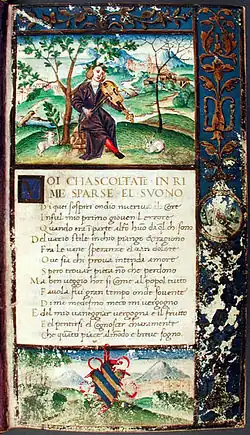 VOI CHASCOLTATE IN RI
ME SPARSE EL SVONO
Di quei sospiri ondio nutriva il core
In sul mio primo giovenil errore
Quando era in parte altro huo da ql chi sono
Del vario stile in chio piango & ragiono
Fra le vane speranze el van dolore
Ove sia chi prova intenda amore
Spero trovar pieta non che perdono
Ma ben veggio hor si come al popol tutto
Favola fui gran tempo onde sovente
Di me medesmo meco mi vergogno
E del mio vaneggiar vergogna e il frutto
E el pentirsi el cognoscer chiaramente
Che quato piace al modo e breve sogno